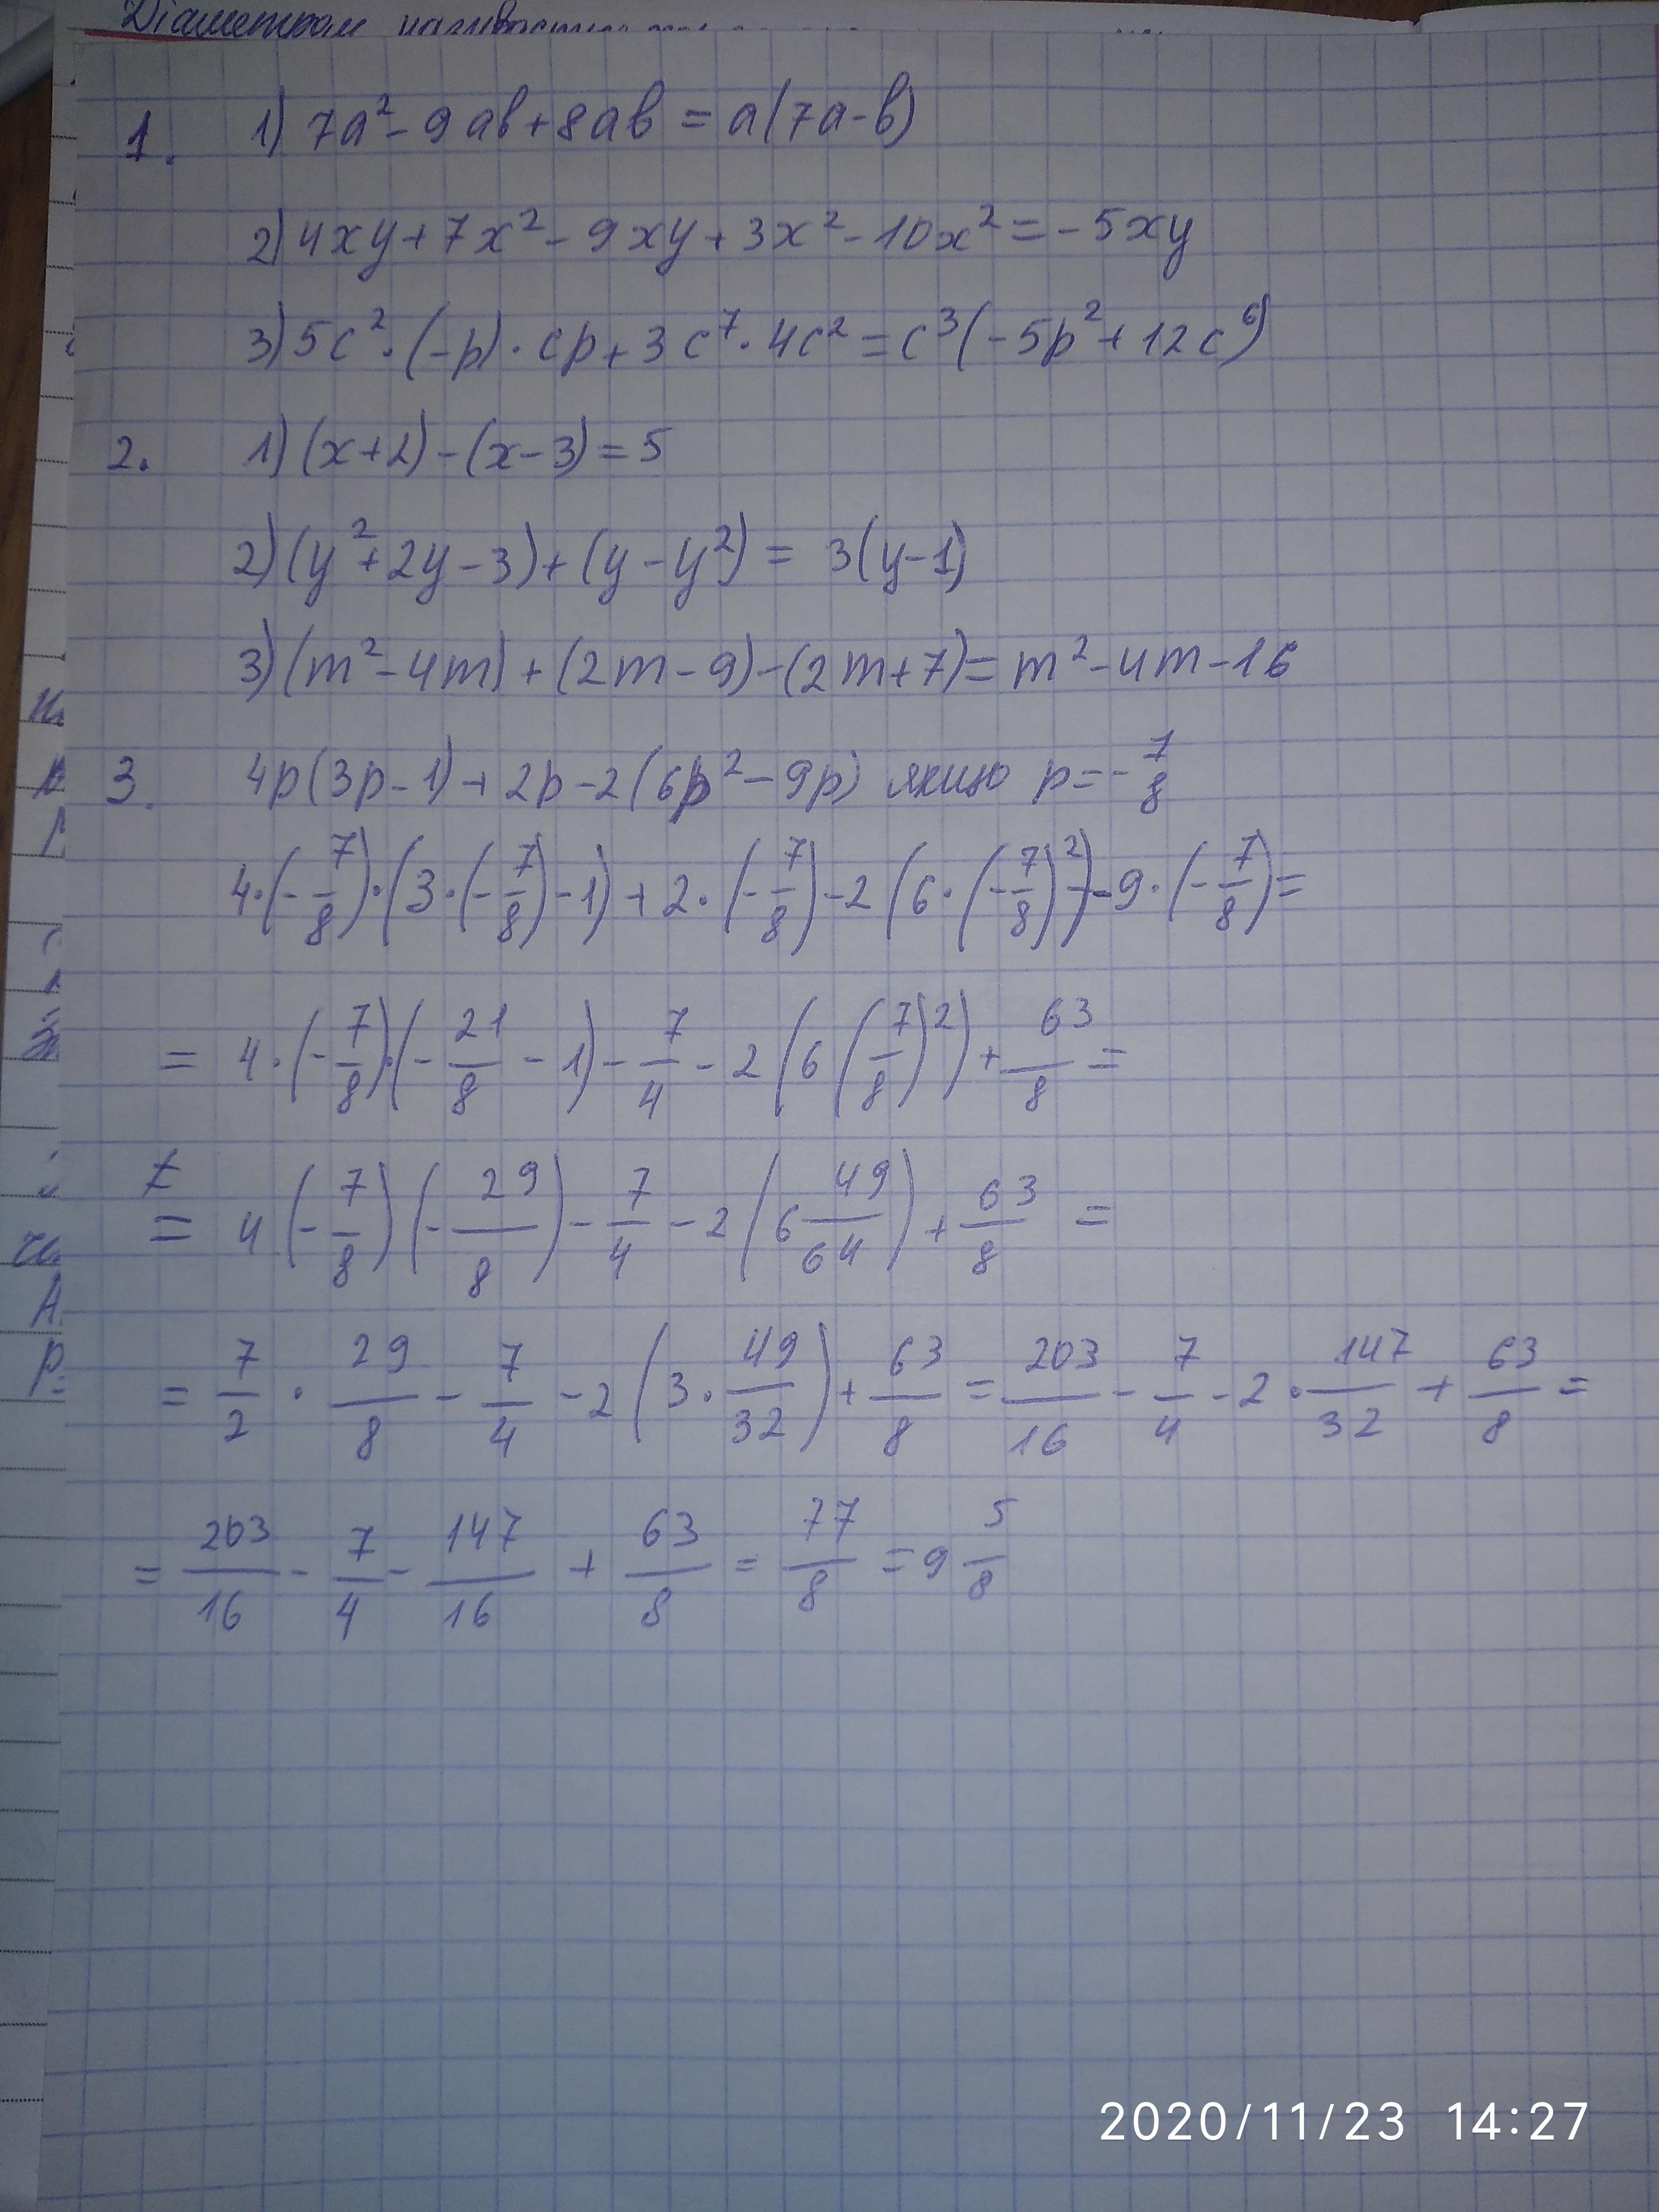 Діаметром називається
1. 1) 7a² - 9ab + 8ab = a(7a - b)
2) 4xy + 7x² - 9xy + 3x² - 10x² = -5xy
3) 5c² · (-p) · cp + 3c⁷ · 4c² = c³(-5p² + 12c⁶)
2. 1) (x + 2) - (x - 3) = 5
2) (y² + 2y - 3) + (y - y²) = 3(y - 1)
3) (m² - 4m) + (2m - 9) - (2m + 7) = m² - 4m - 16
3. 4p(3p - 1) + 2p - 2(6p² - 9p) якщо p = -7/8
4 · (-7/8) · (3 · (-7/8) - 1) + 2 · (-7/8) - 2(6 · (-7/8)²) - 9 · (-7/8) =
= 4 · (-7/8) · (-21/8 - 1) - 7/4 - 2(6(7/8)²) + 63/8 =
= 4(-7/8)(-29/8) - 7/4 - 2(6 49/64) + 63/8 =
= 7/2 · 29/8 - 7/4 - 2(3 · 49/32) + 63/8 = 203/16 - 7/4 - 2 · 147/32 + 63/8 =
= 203/16 - 7/4 - 147/16 + 63/8 = 77/8 = 9 5/8
2020/11/23 14:27